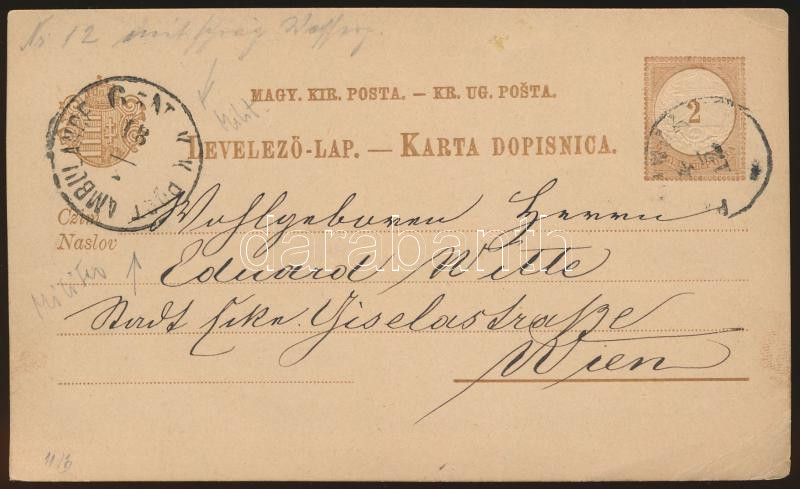 Nr. 12 mit schräg
MAGY. KIR. POSTA. — KR. UG. POŠTA.
LEVELEZŐ-LAP. — KARTA DOPISNICA.
2
AMBULANCE
18
Czím
Naslov
Wohlgeboren Herrn
Eduard Witte
Stadt Giselastraße
Wien
darabanth